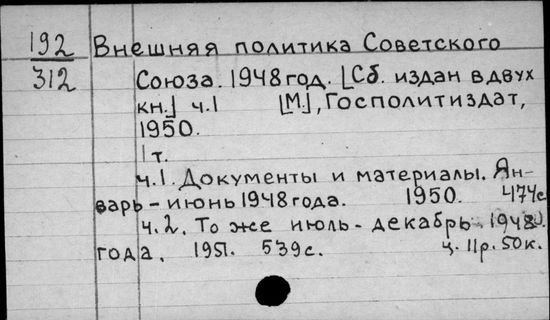 192 Внешняя политика Советского
312 Союза. 1948 год. [Сб. издан в двух
кн.] ч.1 [М.], Госполитиздат,
1950.
1 т.
ч.1. Документы и материалы. Ян-
варь - июнь 1948 года. 1950. 474с
ч.2. То же июль - декабрь 1948
года. 1951. 539с. ц. 11р. 50к.